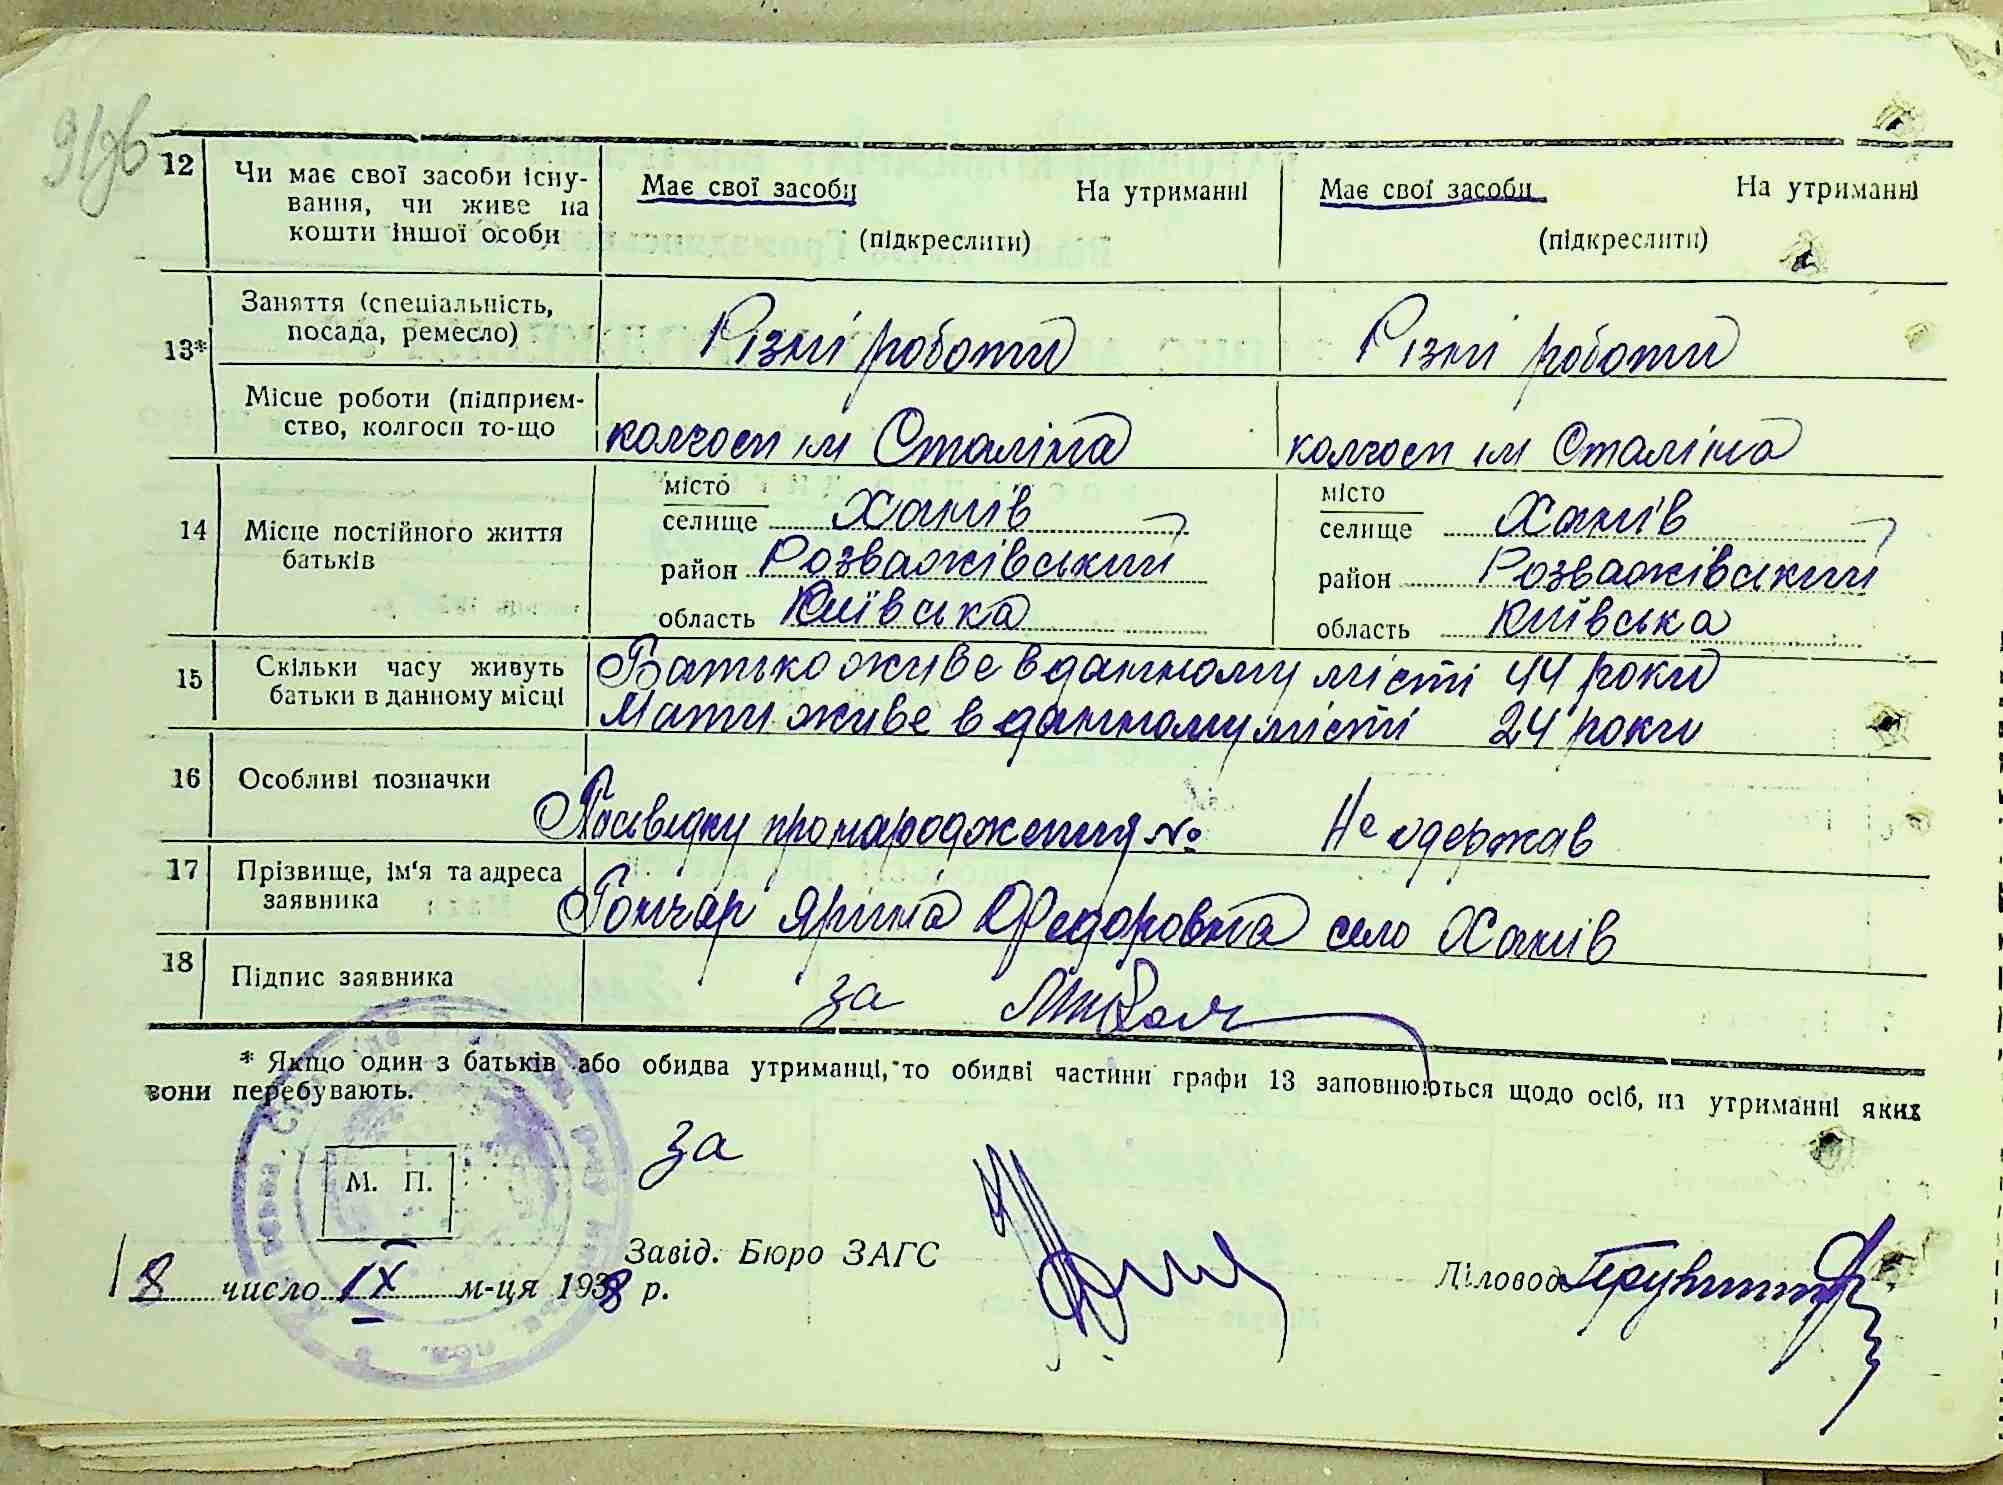 12
Чи має свої засоби існу-
вання, чи живе на
кошти іншої особи
Має свої засоби На утриманні
(підкреслити)
Має свої засоби На утриманні
(підкреслити)
13*
Заняття (спеціальність,
посада, ремесло)
Різні роботи
Різні роботи
Місце роботи (підприєм-
ство, колгосп то-що
колгосп ім Сталіна
колгосп ім Сталіна
14
Місце постійного життя
батьків
місто
селище Ханів
район Розважівський
область Київська
місто
селище Ханів
район Розважівський
область Київська
15
Скільки часу живуть
батьки в данному місці
Батько живе в данному місті 44 роки
Мати живе в данному місті 24 роки
16
Особливі позначки
Посвідку про народження № Не одержав
17
Прізвище, ім'я та адреса
заявника
Гончар Ярина Федоровна село Ханів
18
Підпис заявника
за
* Якщо один з батьків або обидва утриманці, то обидві частини графи 13 заповнюються щодо осіб, на утриманні яких
вони перебувають.
за
М. П.
Завід. Бюро ЗАГС
Діловод
18 число IX м-ця 1938 р.